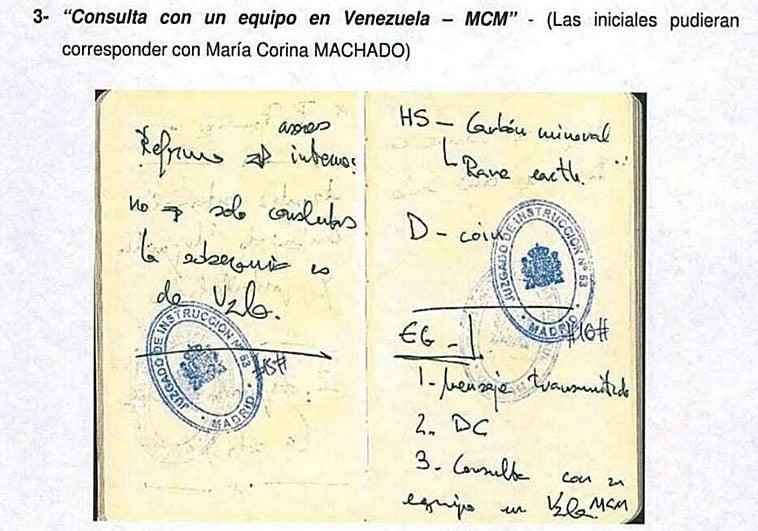 3- “Consulta con un equipo en Venezuela – MCM” - (Las iniciales pudieran
corresponder con María Corina MACHADO)
asores
interno:
no solo consultas
la es
de Vzla.
JUZGADO DE INSTRUCCIÓN Nº 53
MADRID
#15#
HS - Carbón mineral
Rare earth.
D - coin
JUZGADO DE INSTRUCCIÓN Nº 53
MADRID
#16#
EG -
1- mensaje transmitido
2. DC
3. Consulta con un
equipo en Vzla MCM